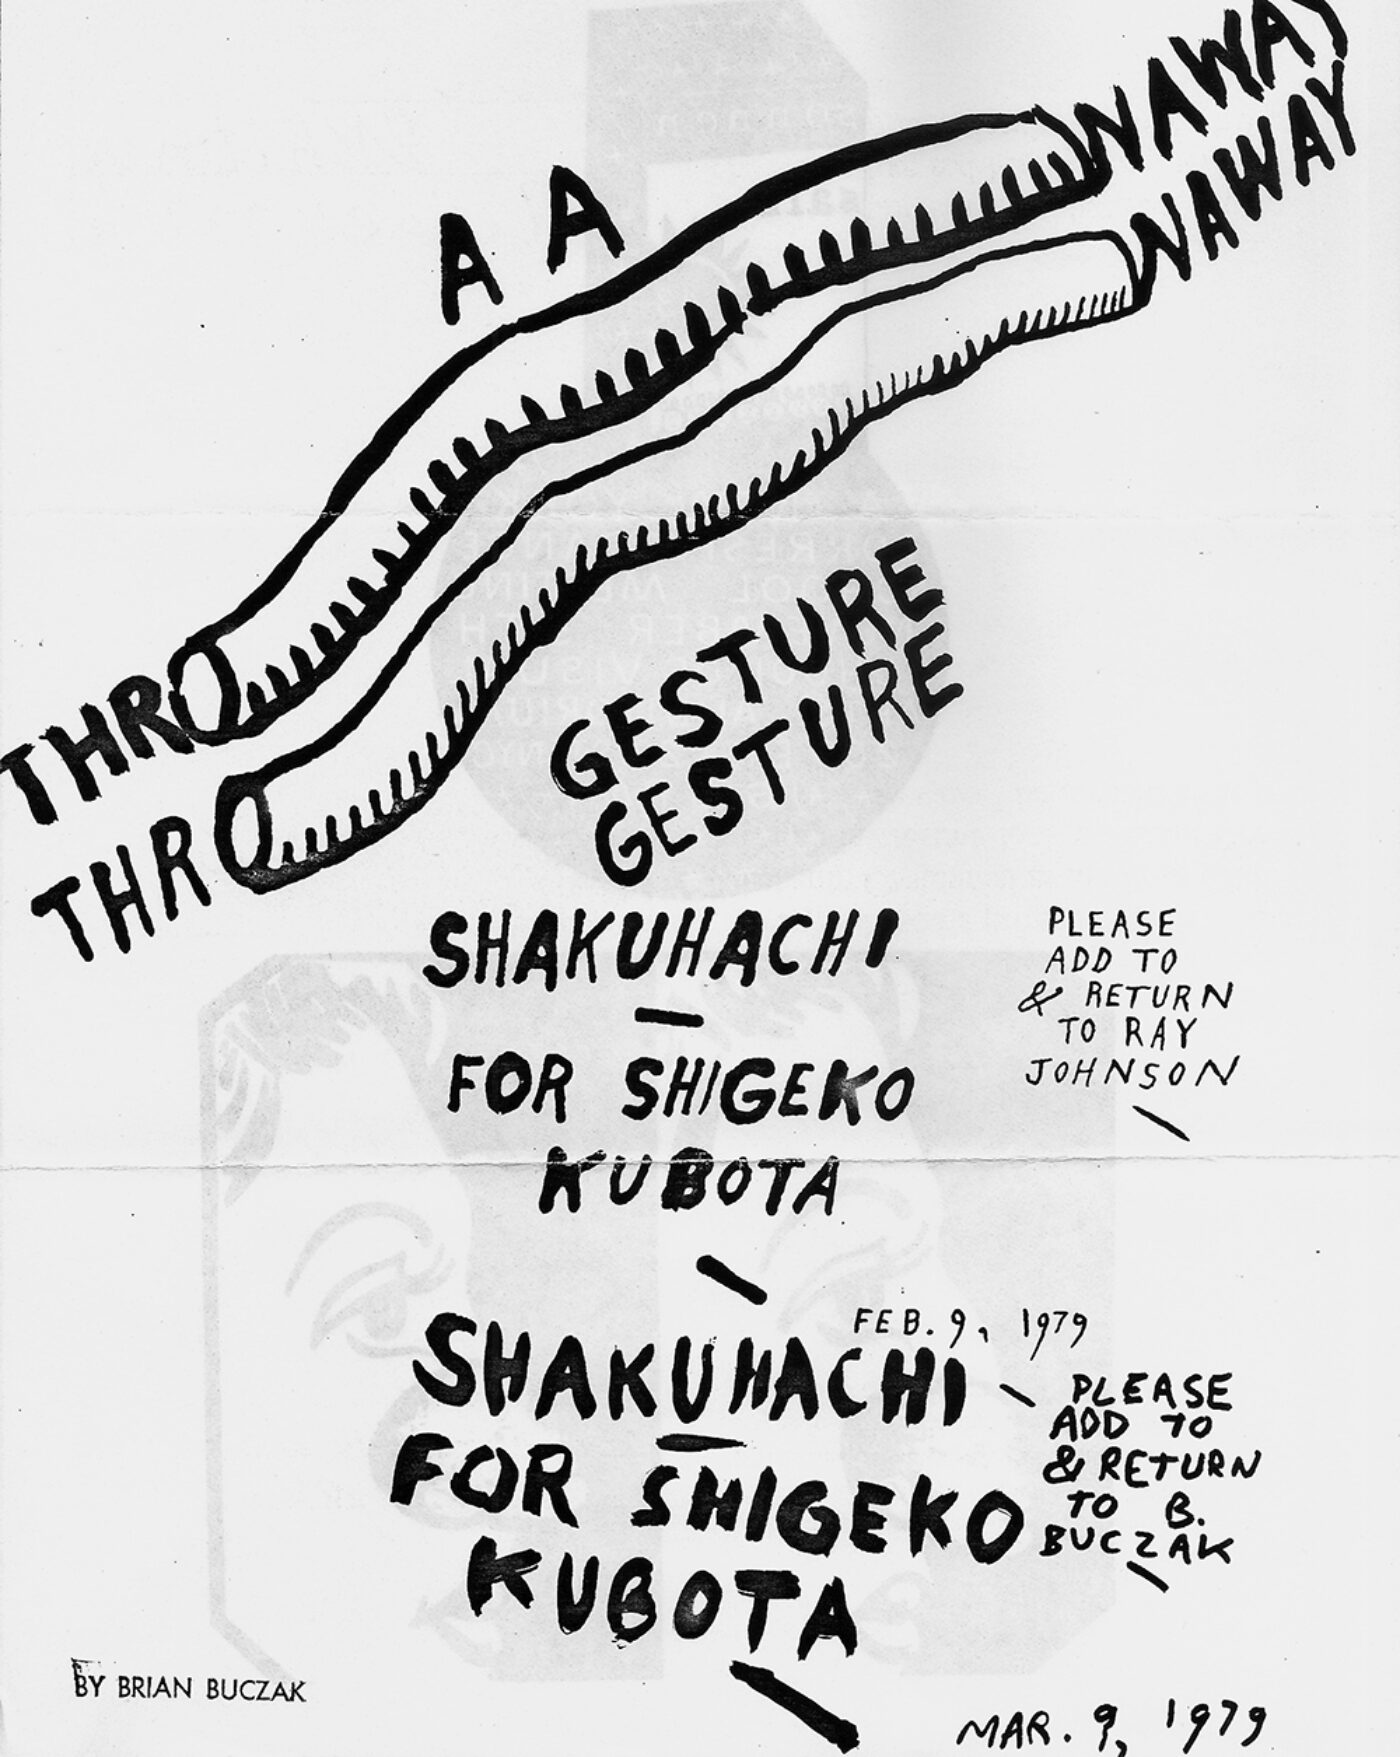 A A
NAWAY
NAWAY
THRO
THRO
GESTURE
GESTURE
SHAKUHACHI
FOR SHIGEKO
KUBOTA
PLEASE
ADD TO
& RETURN
TO RAY
JOHNSON
FEB. 9, 1979
SHAKUHACHI
FOR SHIGEKO
KUBOTA
PLEASE
ADD TO
& RETURN
TO B.
BUCZAK
BY BRIAN BUCZAK
MAR. 9, 1979